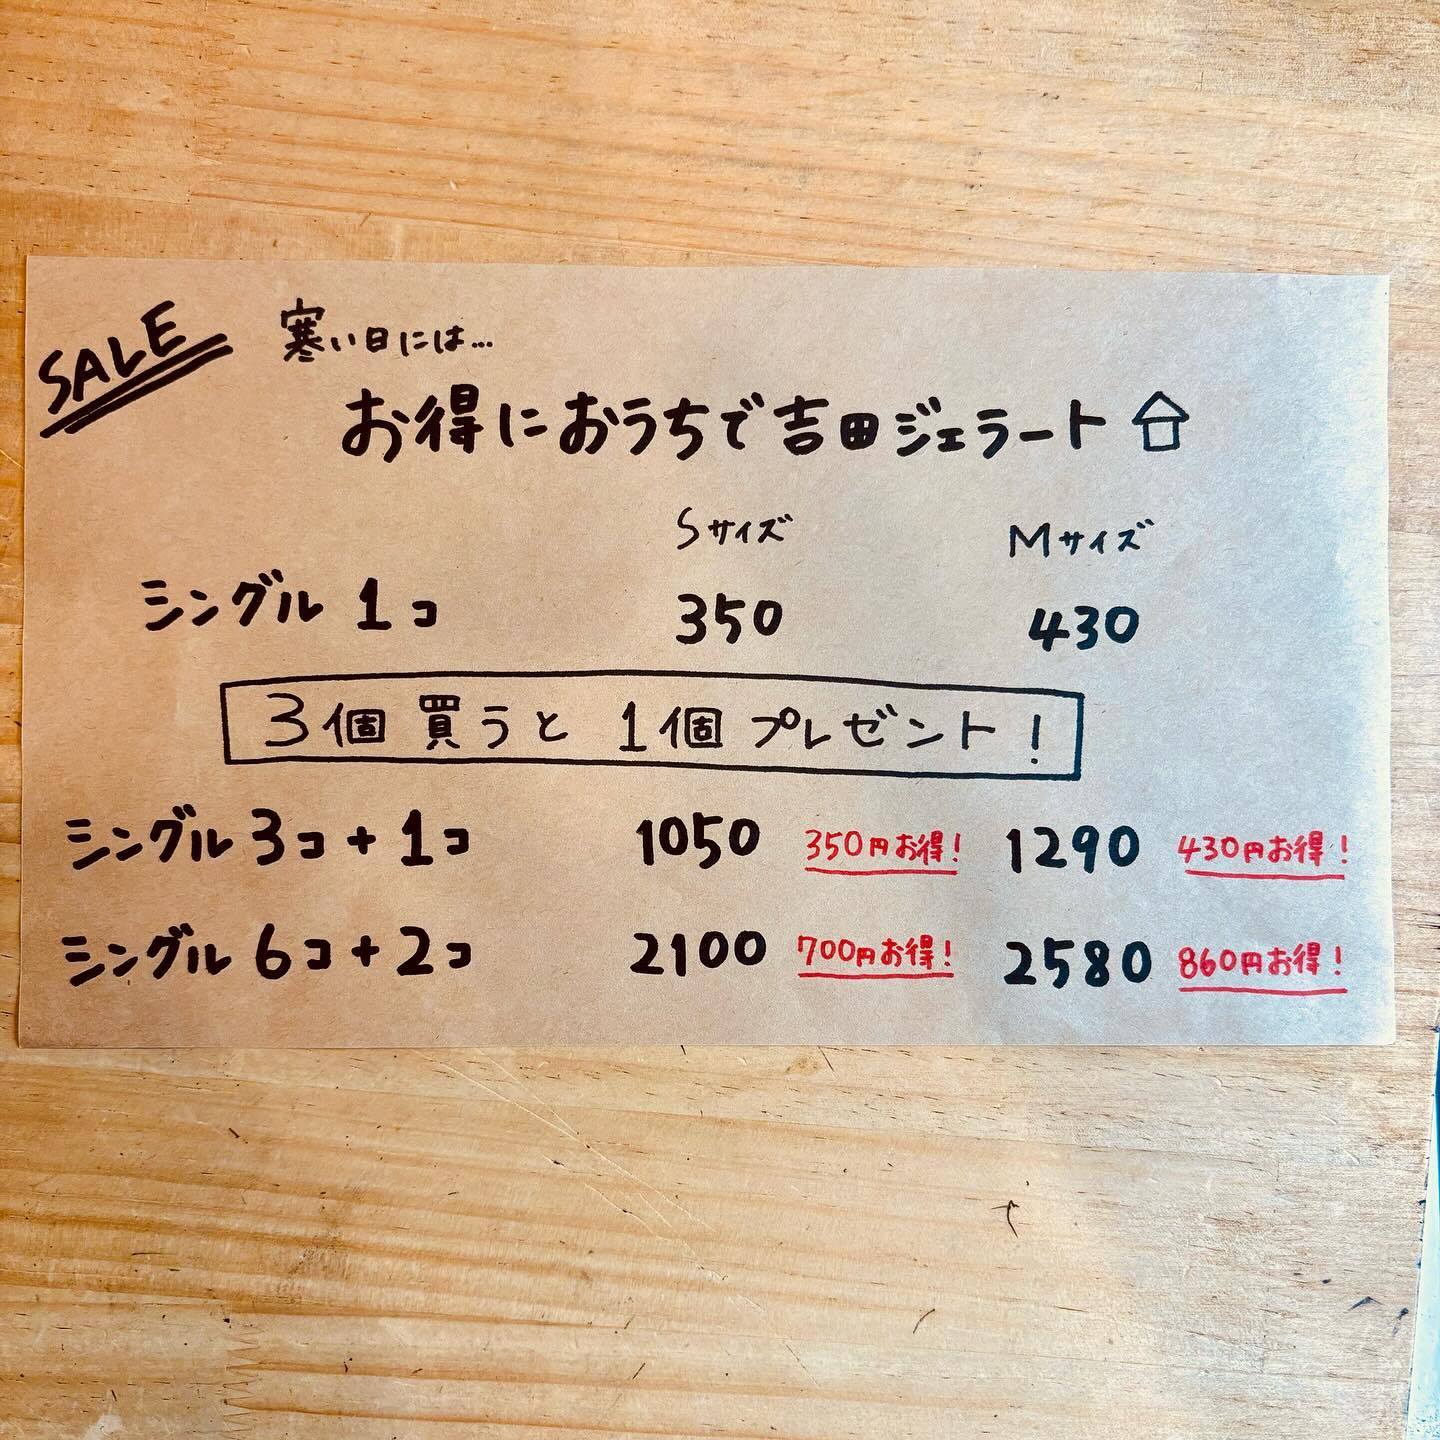 SALE
寒い日には...
お得におうちで吉田ジェラート
Sサイズ Mサイズ
シングル 1コ 350 430
3個買うと1個プレゼント!
シングル 3コ+1コ 1050 350円お得! 1290 430円お得!
シングル 6コ+2コ 2100 700円お得! 2580 860円お得!